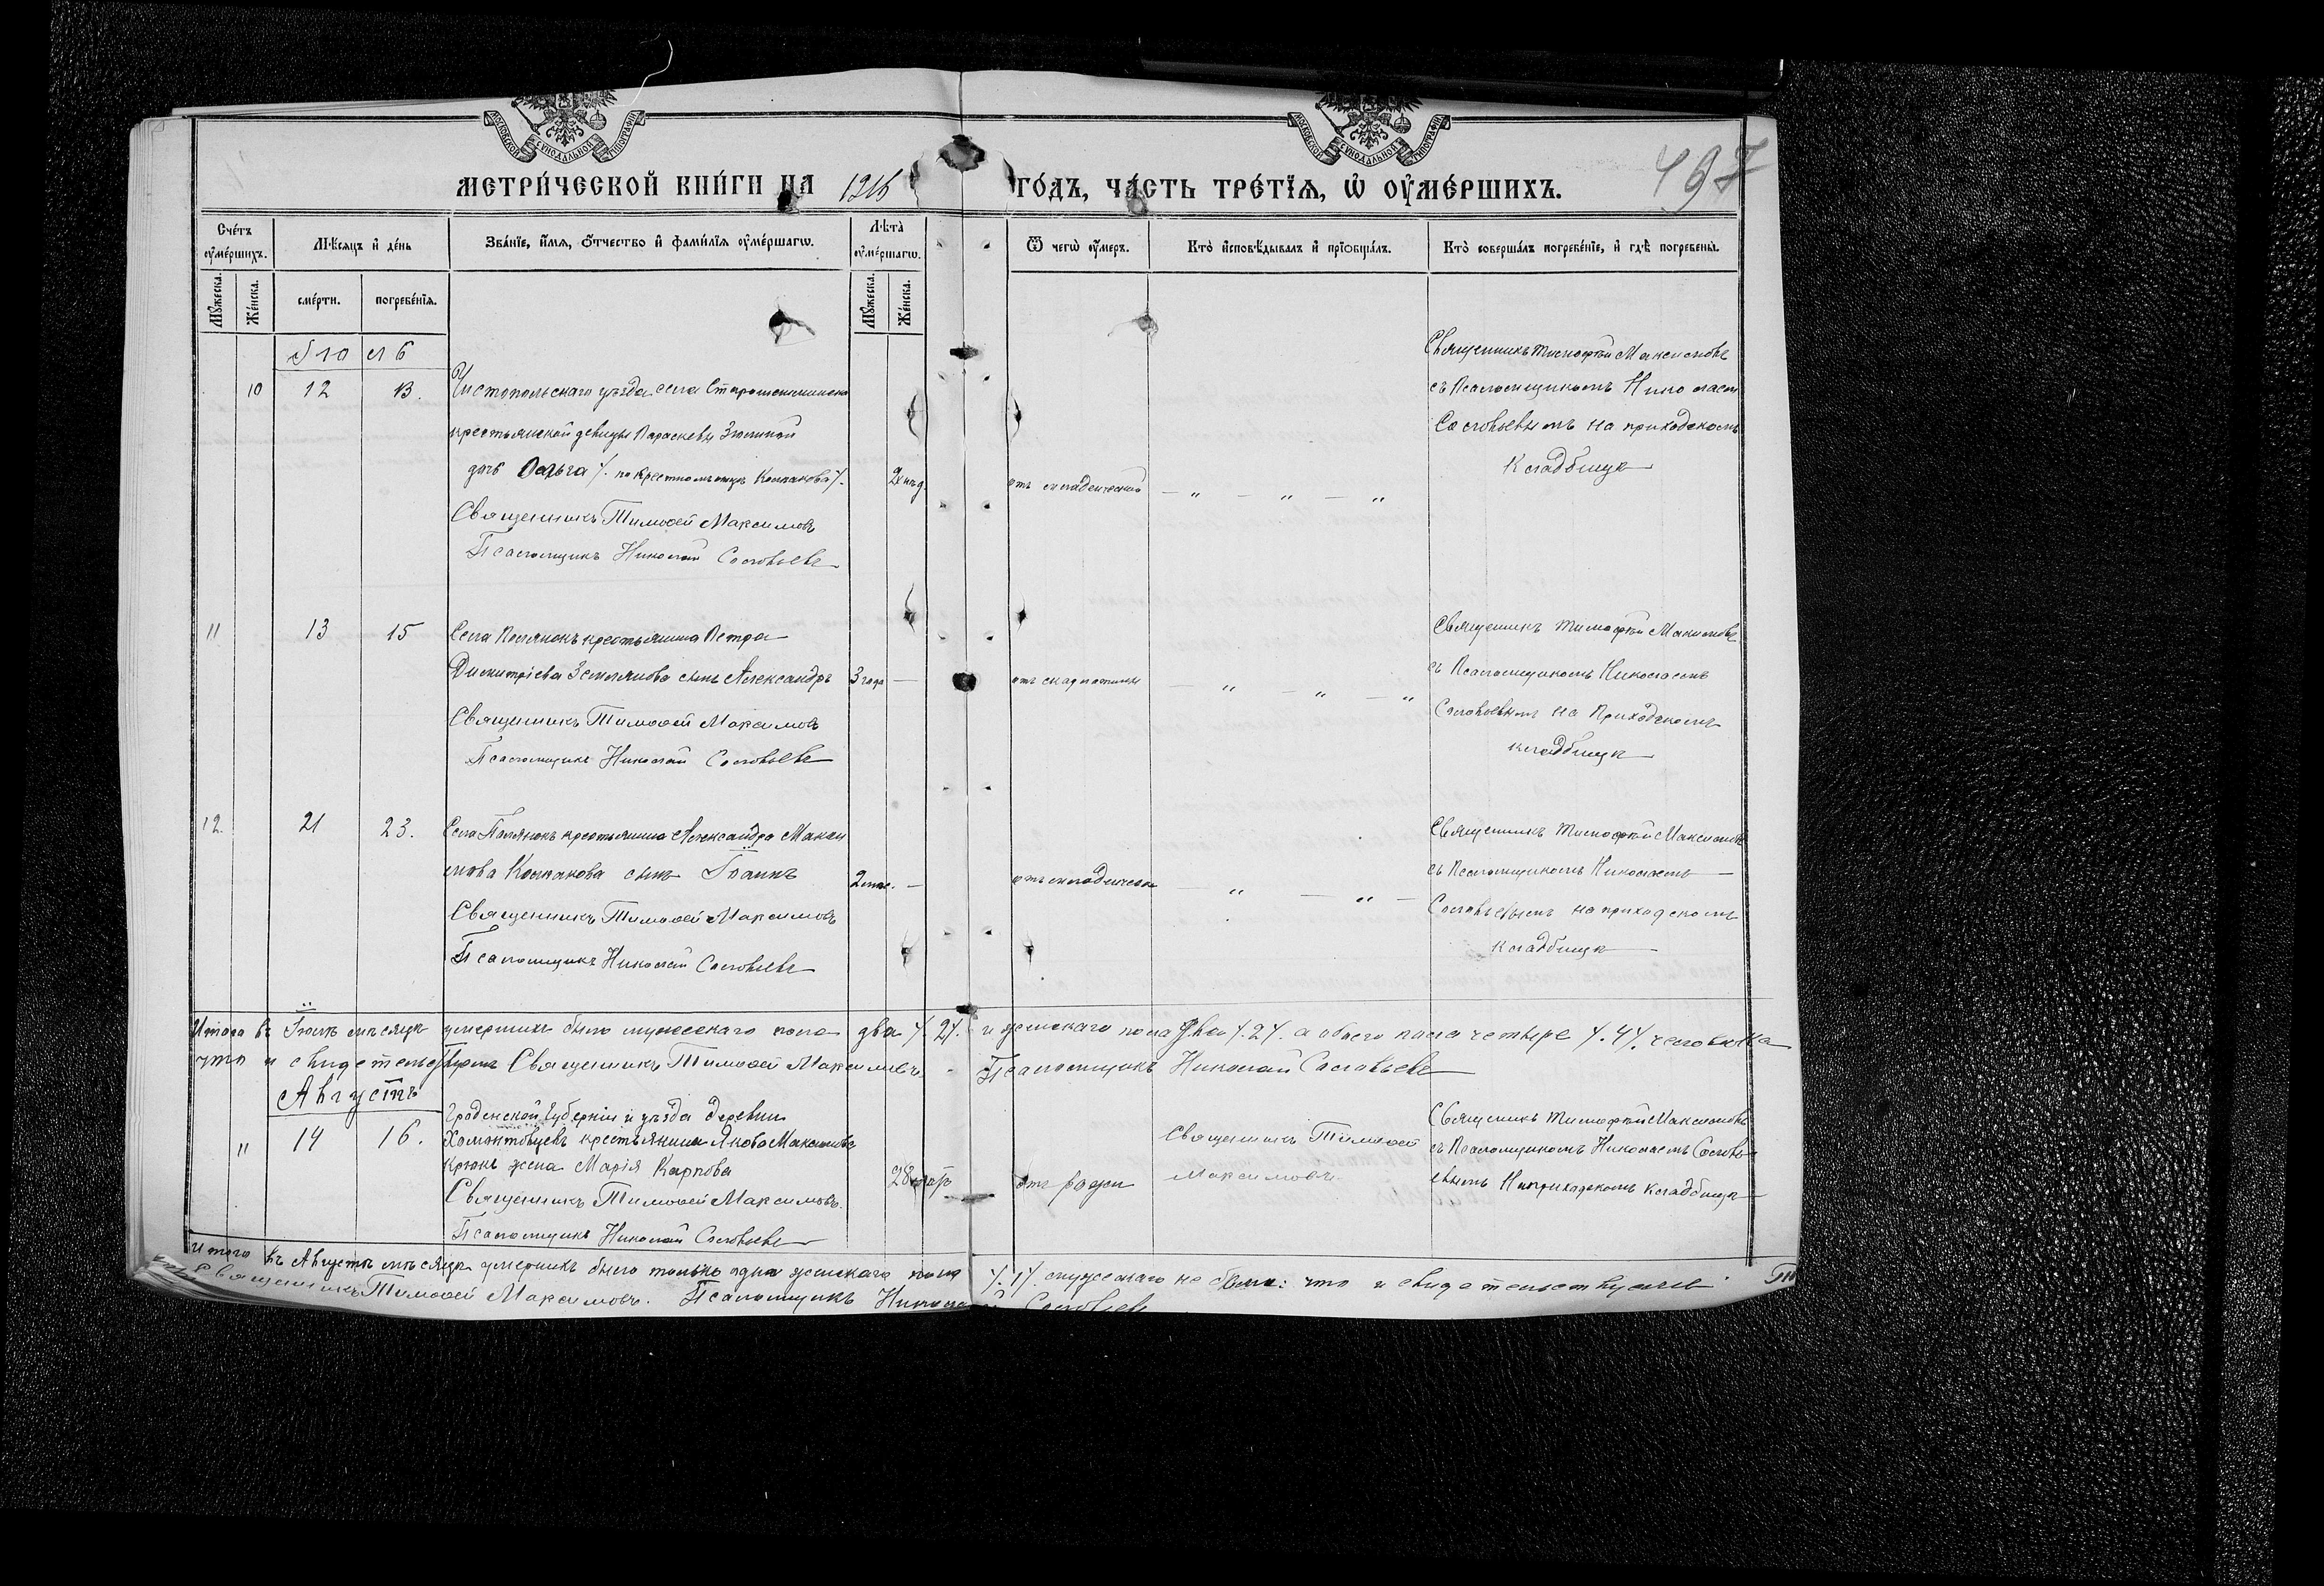 МОСКОВСКОЙ СѴНОДАЛЬНОЙ ТИПОГРАФІИ
МОСКОВСКОЙ СѴНОДАЛЬНОЙ ТИПОГРАФІИ
МЕТРИ́ЧЕСКОЙ КНИ́ГИ НА 1916
ГО́ДЪ, ЧА́СТЬ ТРЕ́ТІѦ, Ѡ҆ ОУ҆МЕ́РШИХЪ.
497
Сче́тъ оу҆ме́ршихъ.
Мѣ́сяцъ и҆ де́нь
Зва́нїе, и҆́мѧ, ѻ҆́тчество и҆ фами́лїѧ оу҆ме́ршагѡ.
Лѣ́та оу҆ме́ршагѡ.
Ѿ чегѡ̀ оу҆́меръ.
Кто̀ и҆сповѣ́дывалъ и҆ прїобща́лъ.
Кто̀ соверша́лъ погребе́нїе, и҆ гдѣ̀ погребены̀.
Мꙋ́жеска.
Же́нска.
сме́рти.
погребе́нїѧ.
Мꙋ́жеска.
Же́нска.
Іюль
10
12
13.
Чистопольскаго уѣзда села
крестьянской дѣвицы Параскевы Зюзиной
дочь Ольга /. по крестному отцу Колпакова /.
Священникъ Тимоѳей Максимовъ
Псаломщикъ Николай Соловьевъ
2 нед.
отъ младенческой
— „ — „ — „
Священникъ Тимофей Максимовъ
съ Псаломщикомъ Николаемъ
Соловьевымъ на приходскомъ
Кладбищѣ
11
13
15
Села Полянокъ крестьянина Петра
Димитріева Землянова сынъ Александръ
Священникъ Тимоѳей Максимовъ
Псаломщикъ Николай Соловьевъ
3 года —
отъ скарлатины
— „ — „ — „
Священникъ Тимофей Максимовъ
съ Псаломщикомъ Николаемъ
Соловьевымъ на Приходскомъ
кладбищѣ
12.
21
23.
Села Полянокъ крестьянина Александра Макси
мова Колпакова сынъ Іоаннъ
Священникъ Тимоѳей Максимовъ
Псаломщикъ Николай Соловьевъ
2 мѣс. —
отъ младенческой
— „ — „ —
Священникъ Тимофей Максимовъ
съ Псаломщикомъ Николаемъ —
Соловьевымъ на приходскомъ
Кладбищѣ
Итого въ Іюлѣ мѣсяцѣ умершихъ было мужескаго пола два /. 2 /. и женскаго пола два /. 2 /. а обоего пола четыре /. 4 /. человѣка
что и свидетельствуемъ Священникъ Тимоѳей Максимовъ. - Псаломщикъ Николай Соловьевъ
Августъ
"
14
16.
Гроденской Губерніи и уѣзда деревни
Хомонтовцевъ крестьянина Якова Максимова
Крюкъ жена Марія Карпова
Священникъ Тимоѳей Максимовъ.
Псаломщикъ Николай Соловьевъ
28
отъ рожи
Священникъ Тимоѳей
Максимовъ.
Священникъ Тимофей Максимовъ
съ Псаломщикомъ Николаемъ Соловь
евымъ На приходскомъ кладбищѣ
Итого въ Августѣ мѣсяцѣ умершихъ было только одна женскаго пола /. 1 /. мужескаго не было: что и свидетельствуемъ
Священникъ Тимоѳей Максимовъ. Псаломщикъ Николай Соловьевъ